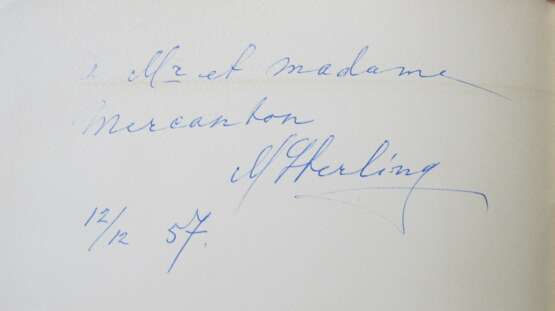 à Mr et madame
Mercanton
M Sterling
12/12 57.